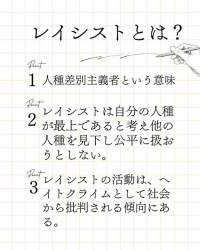 レイシストとは？
Point
1 人種差別主義者という意味
Point
2 レイシストは自分の人種
が最上であると考え他の
人種を見下し公平に扱お
うとしない。
Point
3 レイシストの活動は、ヘ
イトクライムとして社会
から批判される傾向にあ
る。